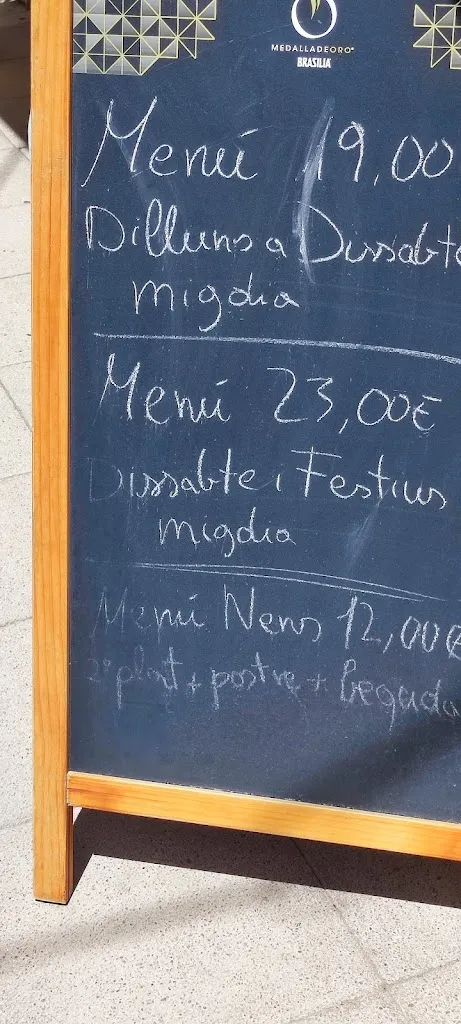 MEDALLADEORO
BRASILIA
Menú 19,00
Dilluns a Dissabte
migdia
Menú 23,00€
Dissabte i Festius
migdia
Menú Nens 12,00€
2º plat + postre + beguda